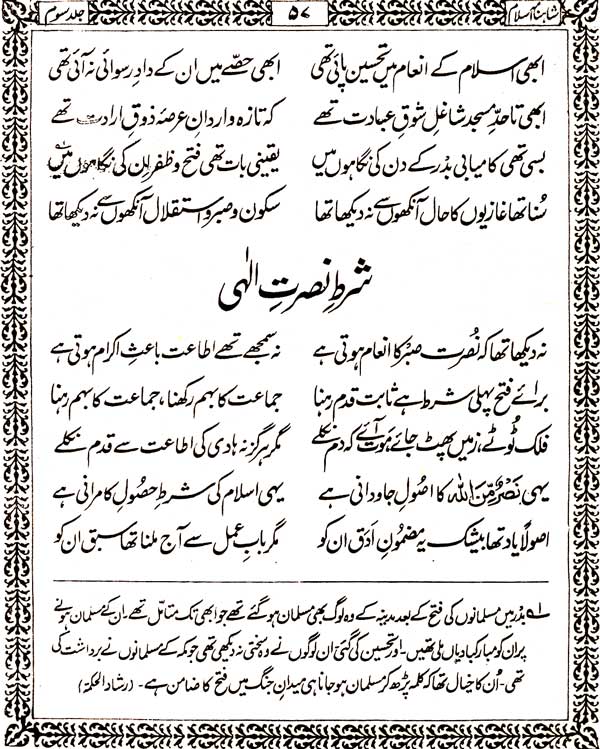 شاہنامۂ اسلام ۵۷ جلد سوم
ابھی اسلام کے انعام میں تحسین پائی تھی ابھی حصّے میں ان کے دادِ رسوائی نہ آئی تھی
ابھی تا حدِّ مسجد شاغلِ شوقِ عبادت تھے کہ تازہ واردانِ عرصۂ ذوقِ ارادت تھے
بسی تھی کامیابی بدر کے دن کی نگاہوں میں یقینی بات تھی فتح و ظفر ان کی نگاہوں میں
سُنا تھا غازیوں کا حال آنکھوں سے نہ دیکھا تھا سکون و صبر و استقلال آنکھوں سے نہ دیکھا تھا
شرطِ نصرتِ الٰہی
نہ دیکھا تھا کہ نُصرت صبر کا انعام ہوتی ہے نہ سمجھے تھے اطاعت باعثِ اکرام ہوتی ہے
برائے فتح پہلی شرط ہے ثابت قدم رہنا جماعت کا بہم رکھنا، جماعت کا بہم رہنا
فلک ٹوٹے، زمیں پھٹ جائے، موت آئے کہ دم نکلے مگر ہرگز نہ ہادی کی اطاعت سے قدم نکلے
یہی نَصْرٌ مِّنَ اللہ کا اصولِ جاودانی ہے یہی اسلام کی شرطِ حصولِ کامرانی ہے
اصولاً یاد تھا بیشک یہ مضمونِ اَدَق ان کو مگر بابِ عمل سے آج ملنا تھا سبق ان کو
لہ بدر میں مسلمانوں کی فتح کے بعد مدینہ کے وہ لوگ بھی مسلمان ہو گئے تھے جو ابھی تک متامّل تھے۔ ان کے مسلمان ہونے
پر ان کو مبارکبادیاں ملی تھیں۔ اور تحسین کی گئی ان لوگوں نے وہ سختی نہ دیکھی تھی جو مکہ کے مسلمانوں نے برداشت کی
تھی۔ اُن کا خیال تھا کہ کلمہ پڑھ کر مسلمان ہو جانا ہی میدانِ جنگ میں فتح کا ضامن ہے۔ (رشاد الحکمۃ)